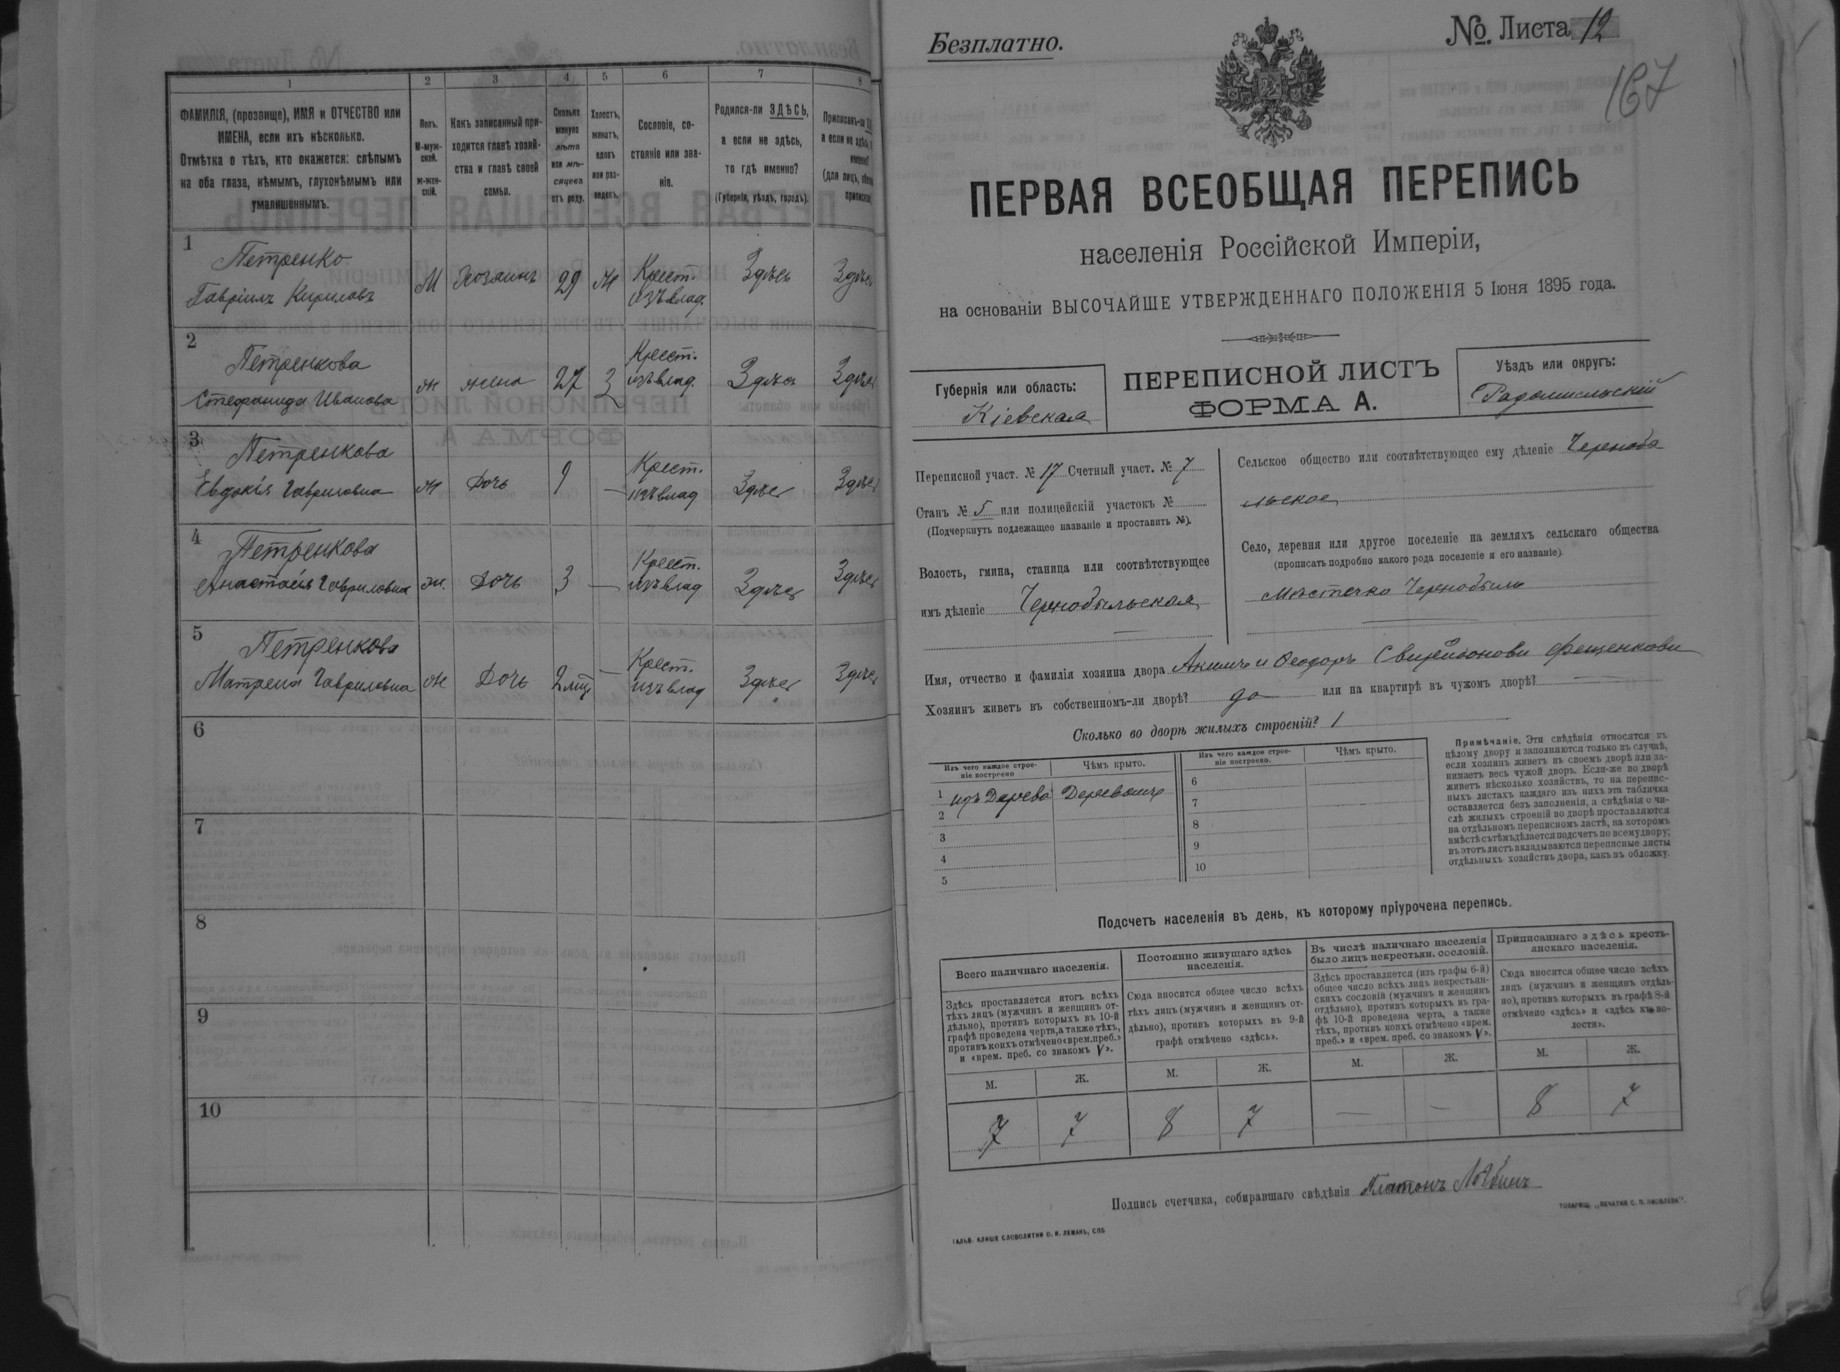 1 2 3 4 5 6 7 8
ФАМИЛІЯ, (прозвище), ИМЯ и ОТЧЕСТВО или
ИМЕНА, если ихъ нѣсколько.
Отмѣтка о тѣхъ, кто окажется: слѣпымъ
на оба глаза, нѣмымъ, глухонѣмымъ или
умалишеннымъ.
Полъ.
М-муж-
ской.
ж-жен-
скій.
Какъ записанный при-
ходится главѣ хозяй-
ства и главѣ своей
семьи.
Сколько
минуло
лѣтъ
или мѣ-
сяцевъ
отъ роду.
Холостъ,
женатъ,
вдовъ
или раз-
веденъ.
Сословіе, со-
стояніе или зва-
ніе.
Родился-ли ЗДѢСЬ,
а если не здѣсь,
то гдѣ именно?
(Губернія, уѣздъ, городъ).
Приписанъ-ли
а если не здѣсь,
именно?
(для лицъ,
1
Петренко
Гавріилъ Кириловъ
М Хозяинъ 29 ж Крест. изъ влад. Здѣсь Здѣсь
2
Петренкова
Стефанида Иванова
ж жена 27 З Крест. изъ влад. Здѣсь Здѣсь
3
Петренкова
Евдокія Гавриловна
ж Дочь 9 — Крест. изъ влад Здѣсь Здѣсь
4
Петренкова
Анастасія Гавриловна
ж. Дочь 3 — Крест. изъ влад Здѣсь Здѣсь
5
Петренкова
Матрена Гавриловна
ж Дочь 2 мц — Крест. изъ влад Здѣсь Здѣсь
6
7
8
9
10
Безплатно.
№ Листа 12
167
ПЕРВАЯ ВСЕОБЩАЯ ПЕРЕПИСЬ
населенія Россійской Имперіи,
на основаніи ВЫСОЧАЙШЕ УТВЕРЖДЕННАГО ПОЛОЖЕНІЯ 5 Іюня 1895 года.
Губернія или область:
Кіевская
ПЕРЕПИСНОЙ ЛИСТЪ
ФОРМА А.
Уѣздъ или округъ:
Радомысльскій
Переписной участ. № 17 Счетный участ. № 7
Станъ № 5 или полицейскій участокъ №
(Подчеркнуть подлежащее названіе и проставить №).
Волость, гмина, станица или соотвѣтствующее
имъ дѣленіе Чернобыльская
Сельское общество или соотвѣтствующее ему дѣленіе Чернобы
льское
Село, деревня или другое поселеніе на земляхъ сельскаго общества
(прописать подробно какого рода поселеніе и его названіе)
Мѣстечко Чернобыль
Имя, отчество и фамилія хозяина двора Акимъ и Ѳеодоръ Свиридонови Фещенкови
Хозяинъ живетъ въ собственномъ-ли дворѣ? да или на квартирѣ въ чужомъ дворѣ? —
Сколько во дворѣ жилыхъ строеній? 1
Изъ чего каждое строе-
ніе построено
Чѣмъ крыто.
Изъ чего каждое строе-
ніе построено.
Чѣмъ крыто.
1 изъ Дерева Деревомъ
2
3
4
5
6
7
8
9
10
Примѣчаніе. Эти свѣдѣнія относятся къ
цѣлому двору и заполняются только въ случаѣ,
если хозяинъ живетъ въ своемъ дворѣ или за-
нимаетъ весь чужой дворъ. Если-же во дворѣ
живетъ нѣсколько хозяйствъ, то на перепис-
ныхъ листахъ каждаго изъ нихъ эта табличка
оставляется безъ заполненія, а свѣдѣнія о чи-
слѣ жилыхъ строеній во дворѣ проставляются
на отдѣльномъ переписномъ листѣ, на которомъ
вмѣстѣ съ тѣмъ дѣлается подсчетъ по всему двору;
въ этотъ листъ вкладываются переписные листы
отдѣльныхъ хозяйствъ двора, какъ въ обложку.
Подсчетъ населенія въ день, къ которому пріурочена перепись.
Всего наличнаго населенія.
Здѣсь проставляется итогъ всѣхъ
тѣхъ лицъ (мужчинъ и женщинъ от-
дѣльно), противъ которыхъ въ 10-й
графѣ проведена черта, а также тѣхъ,
противъ коихъ отмѣчено «врем. преб.»
и «врем. преб. со знакомъ V».
Постоянно живущаго здѣсь
населенія.
Сюда вносится общее число всѣхъ
тѣхъ лицъ (мужчинъ и женщинъ от-
дѣльно), противъ которыхъ въ 9-й
графѣ отмѣчено «здѣсь».
Въ числѣ наличнаго населенія
было лицъ некрестьян. сословій.
Здѣсь проставляется (изъ графы 6-й)
общее число всѣхъ лицъ некрестьян-
скихъ сословій (мужчинъ и женщинъ
отдѣльно), противъ которыхъ въ гра-
фѣ 10-й проведена черта, а также
тѣхъ, противъ коихъ отмѣчено «врем.
преб.» и «врем. преб. со знакомъ V».
Приписаннаго здѣсь кресть-
янскаго населенія.
Сюда вносится общее число всѣхъ
лицъ (мужчинъ и женщинъ отдѣль-
но), противъ которыхъ въ графѣ 8-й
отмѣчено «здѣсь» и «здѣсь къ во-
лости».
М. Ж. М. Ж. М. Ж. М. Ж.
7 7 8 7 — — 8 7
Подпись счетчика, собиравшаго свѣдѣнія Платонъ
ГАЛЬВ. КЛИШЕ СЛОВОЛИТНИ О. И. ЛЕМАНЪ, СПБ
ТОВАРИЩ. „ПЕЧАТНЯ С. П. ЯКОВЛЕВА".